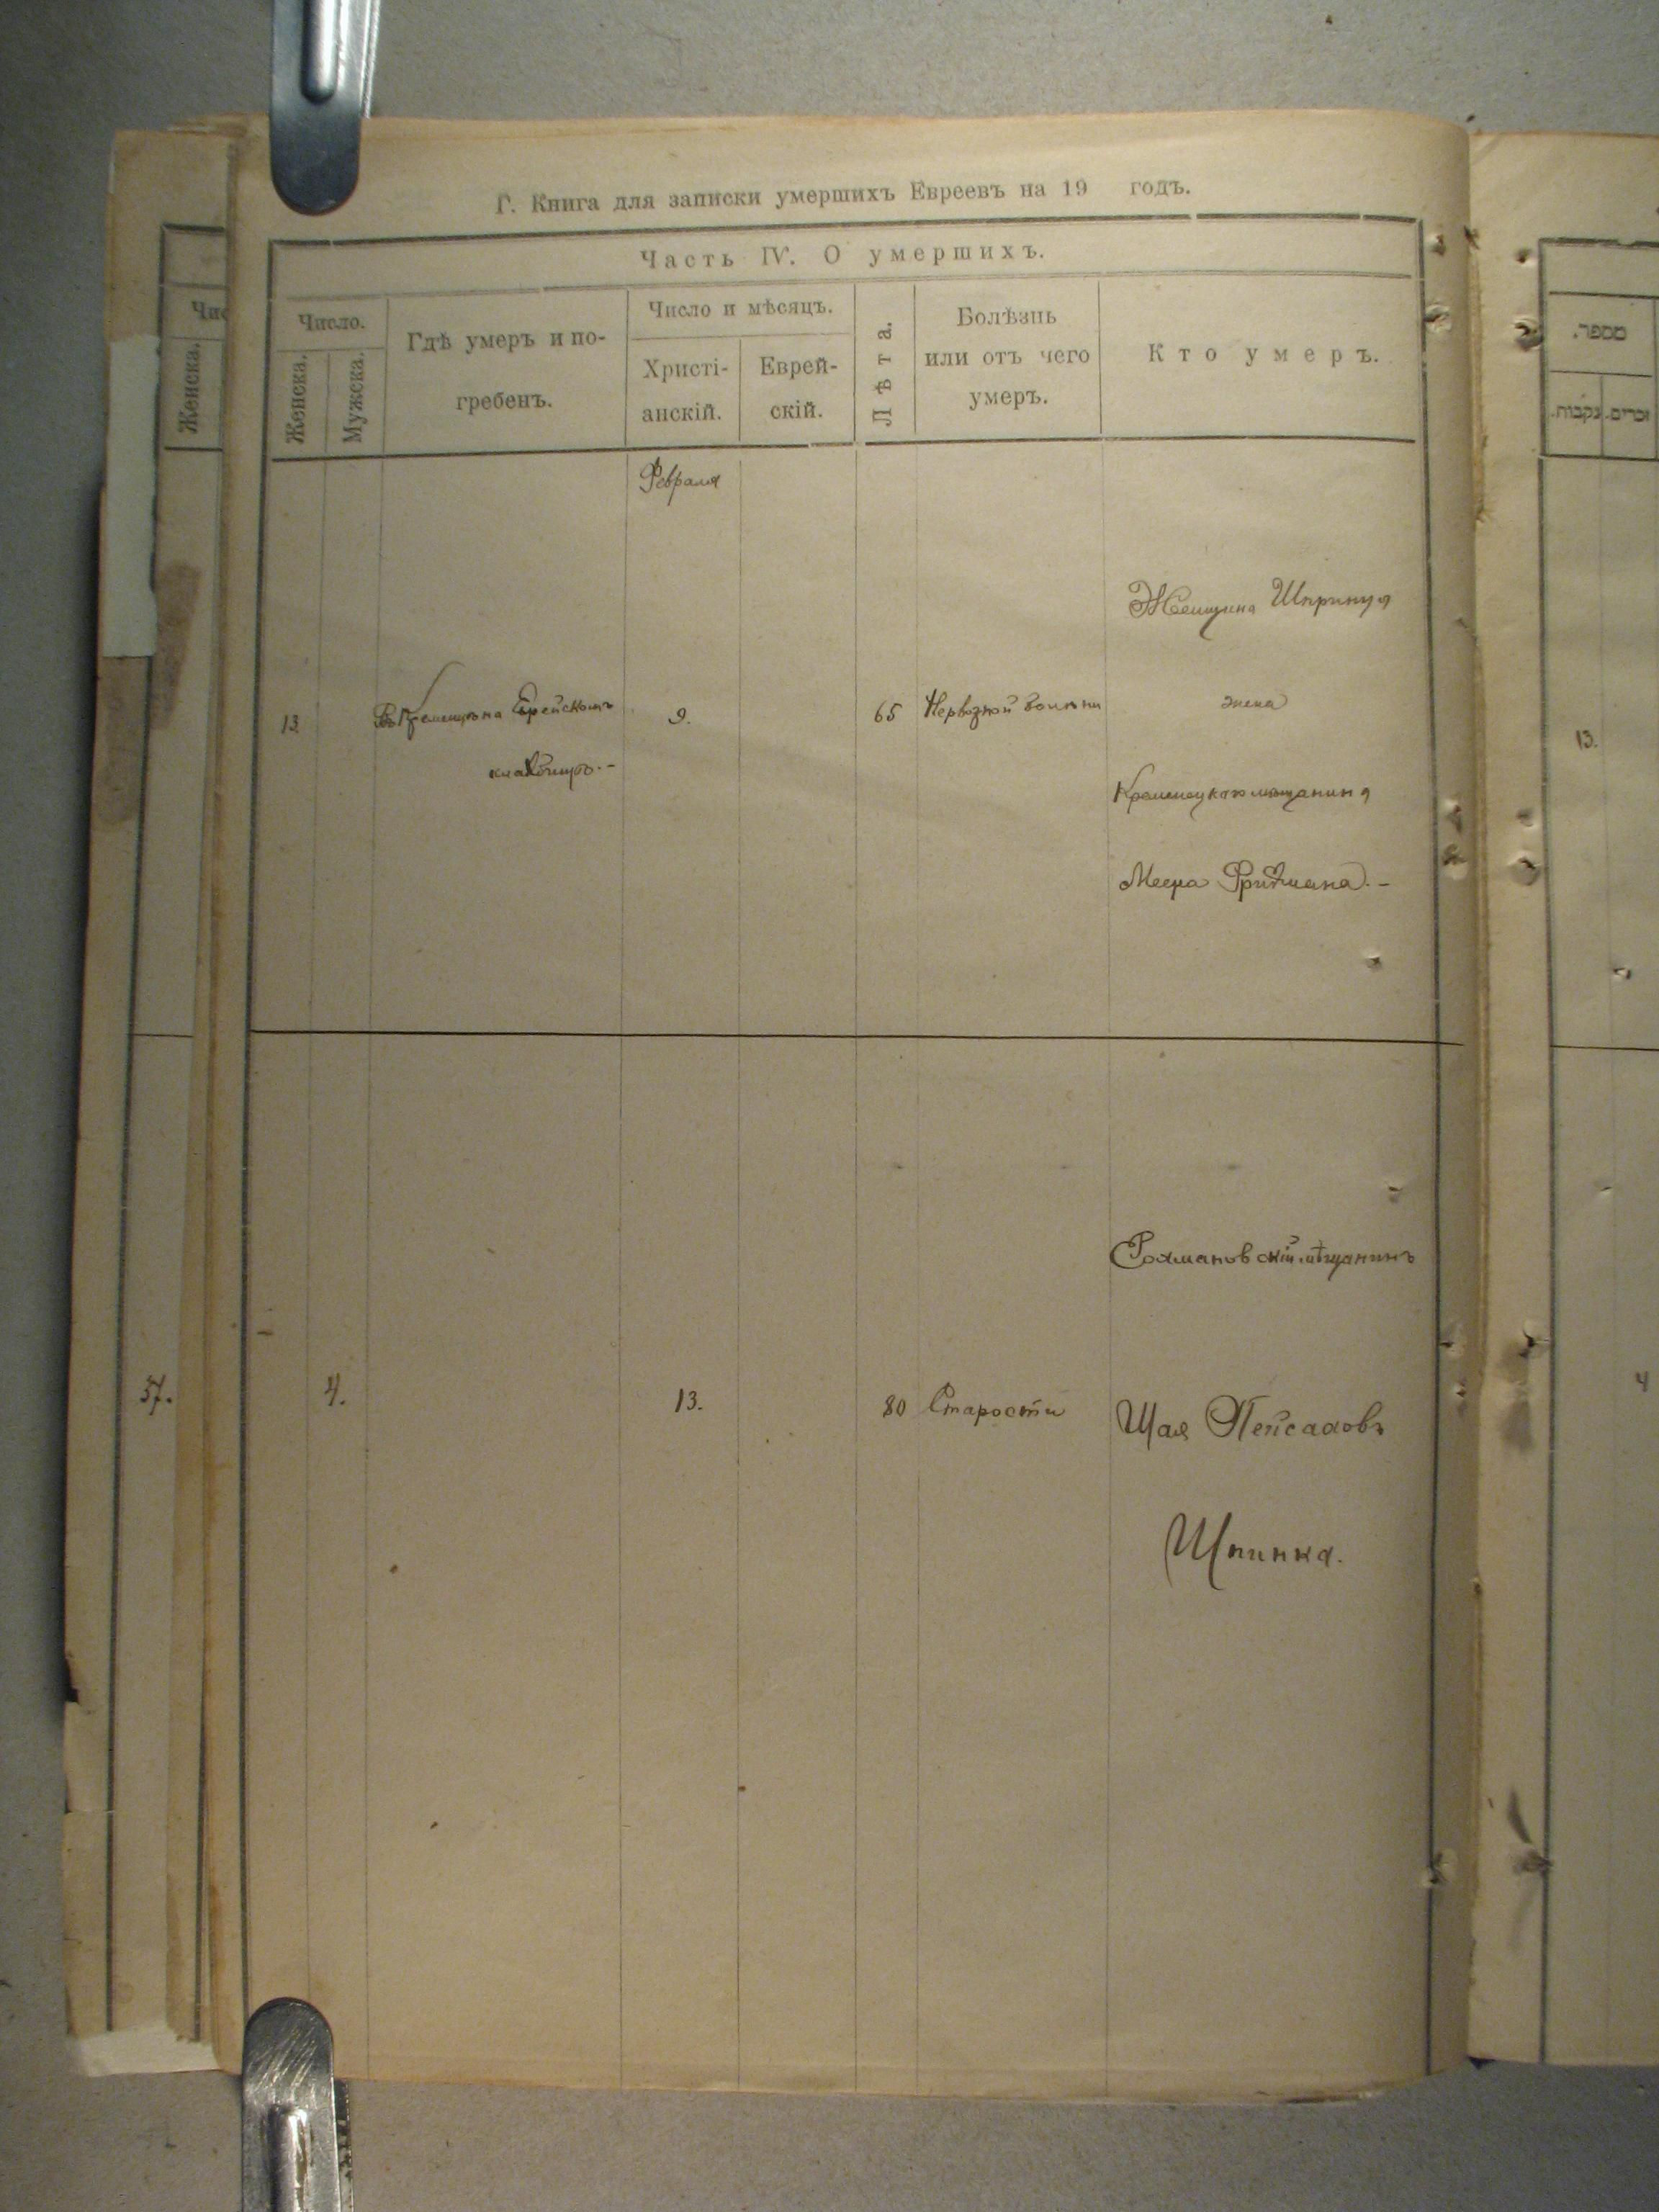 Г. Книга для записки умершихъ Евреевъ на 19 годъ.
Часть IV. О умершихъ.
Число.
Женска.
Мужска.
Гдѣ умеръ и по-
гребенъ.
Число и мѣсяцъ.
Христі-
анскій.
Еврей-
скій.
Лѣта.
Болѣзнь
или отъ чего
умеръ.
Кто умеръ.
Февраля
13
Въ Кременцѣ на Еврейскомъ
кладбищѣ.-
9.
65
Нервозной болѣзни
Женщина Шпринця
жена
Кременецкого мѣщанина
Меера Фридмана.-
4.
13.
80
Старости
Рохмановскій мѣщанинъ
Шая Пейсаховъ
Шпинка.
Чис
Женска.
37.
מספר.
נקבות.
זכרים.
13.
4